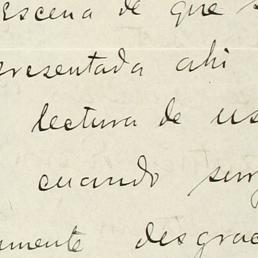 escena de que s
presentada ahi
lectura de us
cuando surg
amente desgrac